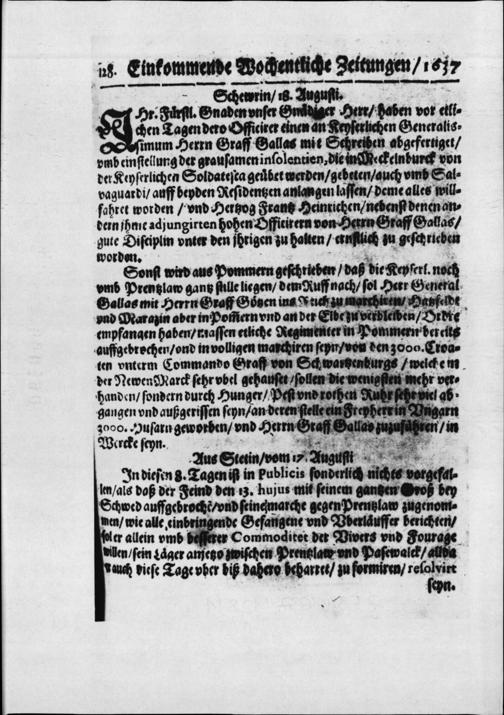 128. Einkommende Wochentliche Zeitungen / 1637
Schewrin / 18. Augusti.
IHr. Fürstl. Gnaden vnser Gnädiger Herr / haben vor etli-
chen Tagen dero Officirer einen an Keyserlichen Generalis-
simum Herrn Graff Gallas mit Schreiben abgefertiget /
vmb einstellung der grausamen insolentien, die in Meckelnburck von
der Keyserlichen Soldatesca geübet werden / gebeten / auch vmb Sal-
vaguardi / auff beyden Residentzen anlangen lassen / deme alles will-
fahret worden / vnd Hertzog Frantz Heinrichen / nebenst denen an-
dern ihme adjungirten hohen Officirern von Herrn Graff Gallas /
gute Disciplin vnter den ihrigen zu halten / ernstlich zu geschrieben
worden.
Sonst wird aus Pommern geschrieben / daß die Keyserl. noch
vmb Prentzlaw gantz stille liegen / dem Ruff nach / sol Herr General
Gallas mit Herrn Graff Götzen ins Reich zu marchiren / Hatzfelds
vnd Marazin aber in Pommern vnd an der Elbe zu verbleiben / Ordre
empfangen haben / massen etliche Regimenter in Pommern bereits
auffgebrochen / vnd in volligen marchiren seyn / von den 3000. Croa-
ten vnterm Commando Graff von Schwartzenburgs / welche in
der Newen Marck sehr vbel gehauset / sollen die wenigsten mehr ver-
handen / sondern durch Hunger / Pest vnd rothen Ruhr sehr viel ab-
gangen vnd außgerissen seyn / an deren stelle ein Freyherr in Vngarn
3000. Husarn geworben / vnd Herrn Graff Gallas zuzuführen / in
Wercke seyn.
Aus Stetin / vom 17. Augusti
In diesen 8. Tagen ist in Publicis sonderlich nichts vorgefal-
len / als daß der Feind den 13. hujus mit seinem gantzen Groß bey
Schwed auffgebrochē / vnd seine marche gegen Prentzlaw zugenom-
men / wie alle einbringende Gefangene vnd Vberläuffer berichten /
sol er allein vmb besserer Commoditet der Vivers vnd Fourage
willen / sein Läger anjetzo zwischen Prentzlaw vnd Pasewalck / allda
auch diese Tage vber biß dahero beharret / zu formiren / resolvirt
seyn.